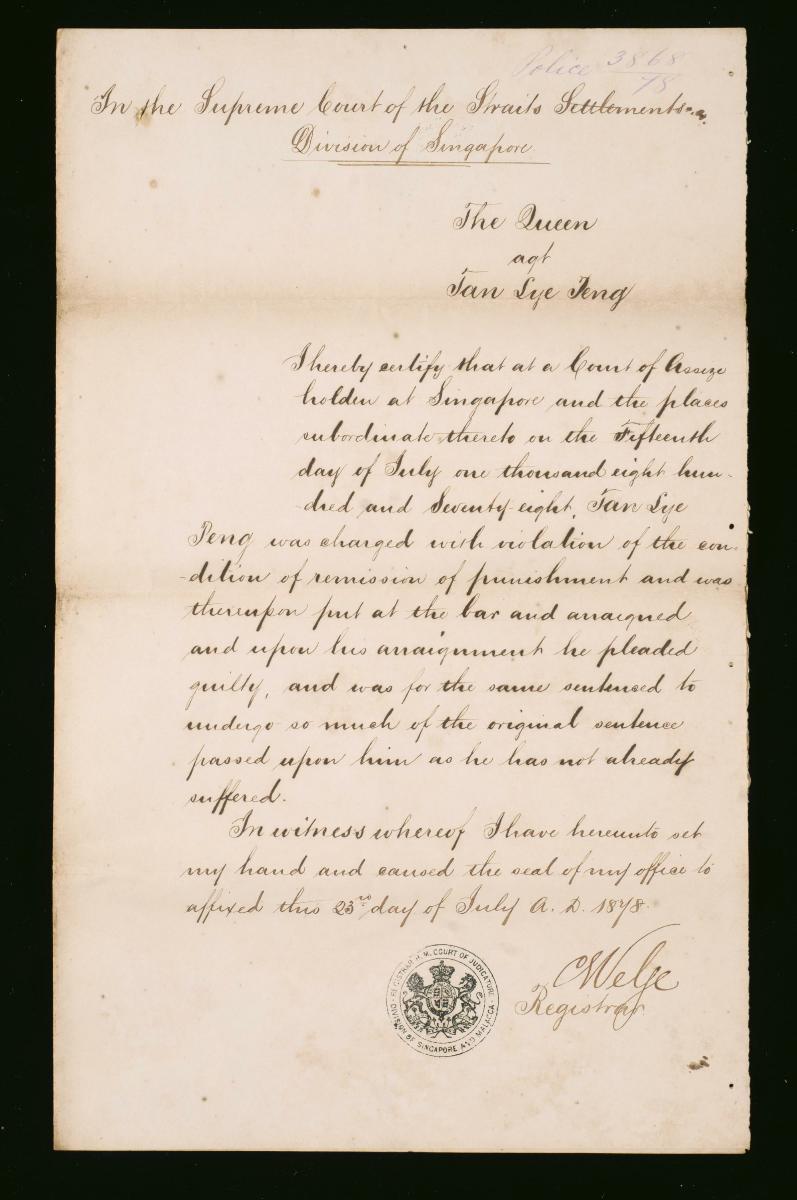 Police 3868/78
In the Supreme Court of the Straits Settlements
Division of Singapore
The Queen
agt
Tan Lye Peng
I hereby certify that at a Court of Assize
holden at Singapore and the places
subordinate thereto on the Fifteenth
day of July one thousand eight hun-
-dred and Seventy-eight, Tan Lye
Peng was charged with violation of the con-
-dition of remission of punishment and was
thereupon put at the bar and arraigned
and upon his arraignment he pleaded
guilty, and was for the same sentenced to
undergo so much of the original sentence
passed upon him as he has not already
suffered.
In witness whereof I have hereunto set
my hand and caused the seal of my office to
affixed this 23rd day of July A. D. 1878.
REGISTRAR H. M. COURT OF JUDICATURE
DIVISION OF SINGAPORE AND MALACCA
Registrar